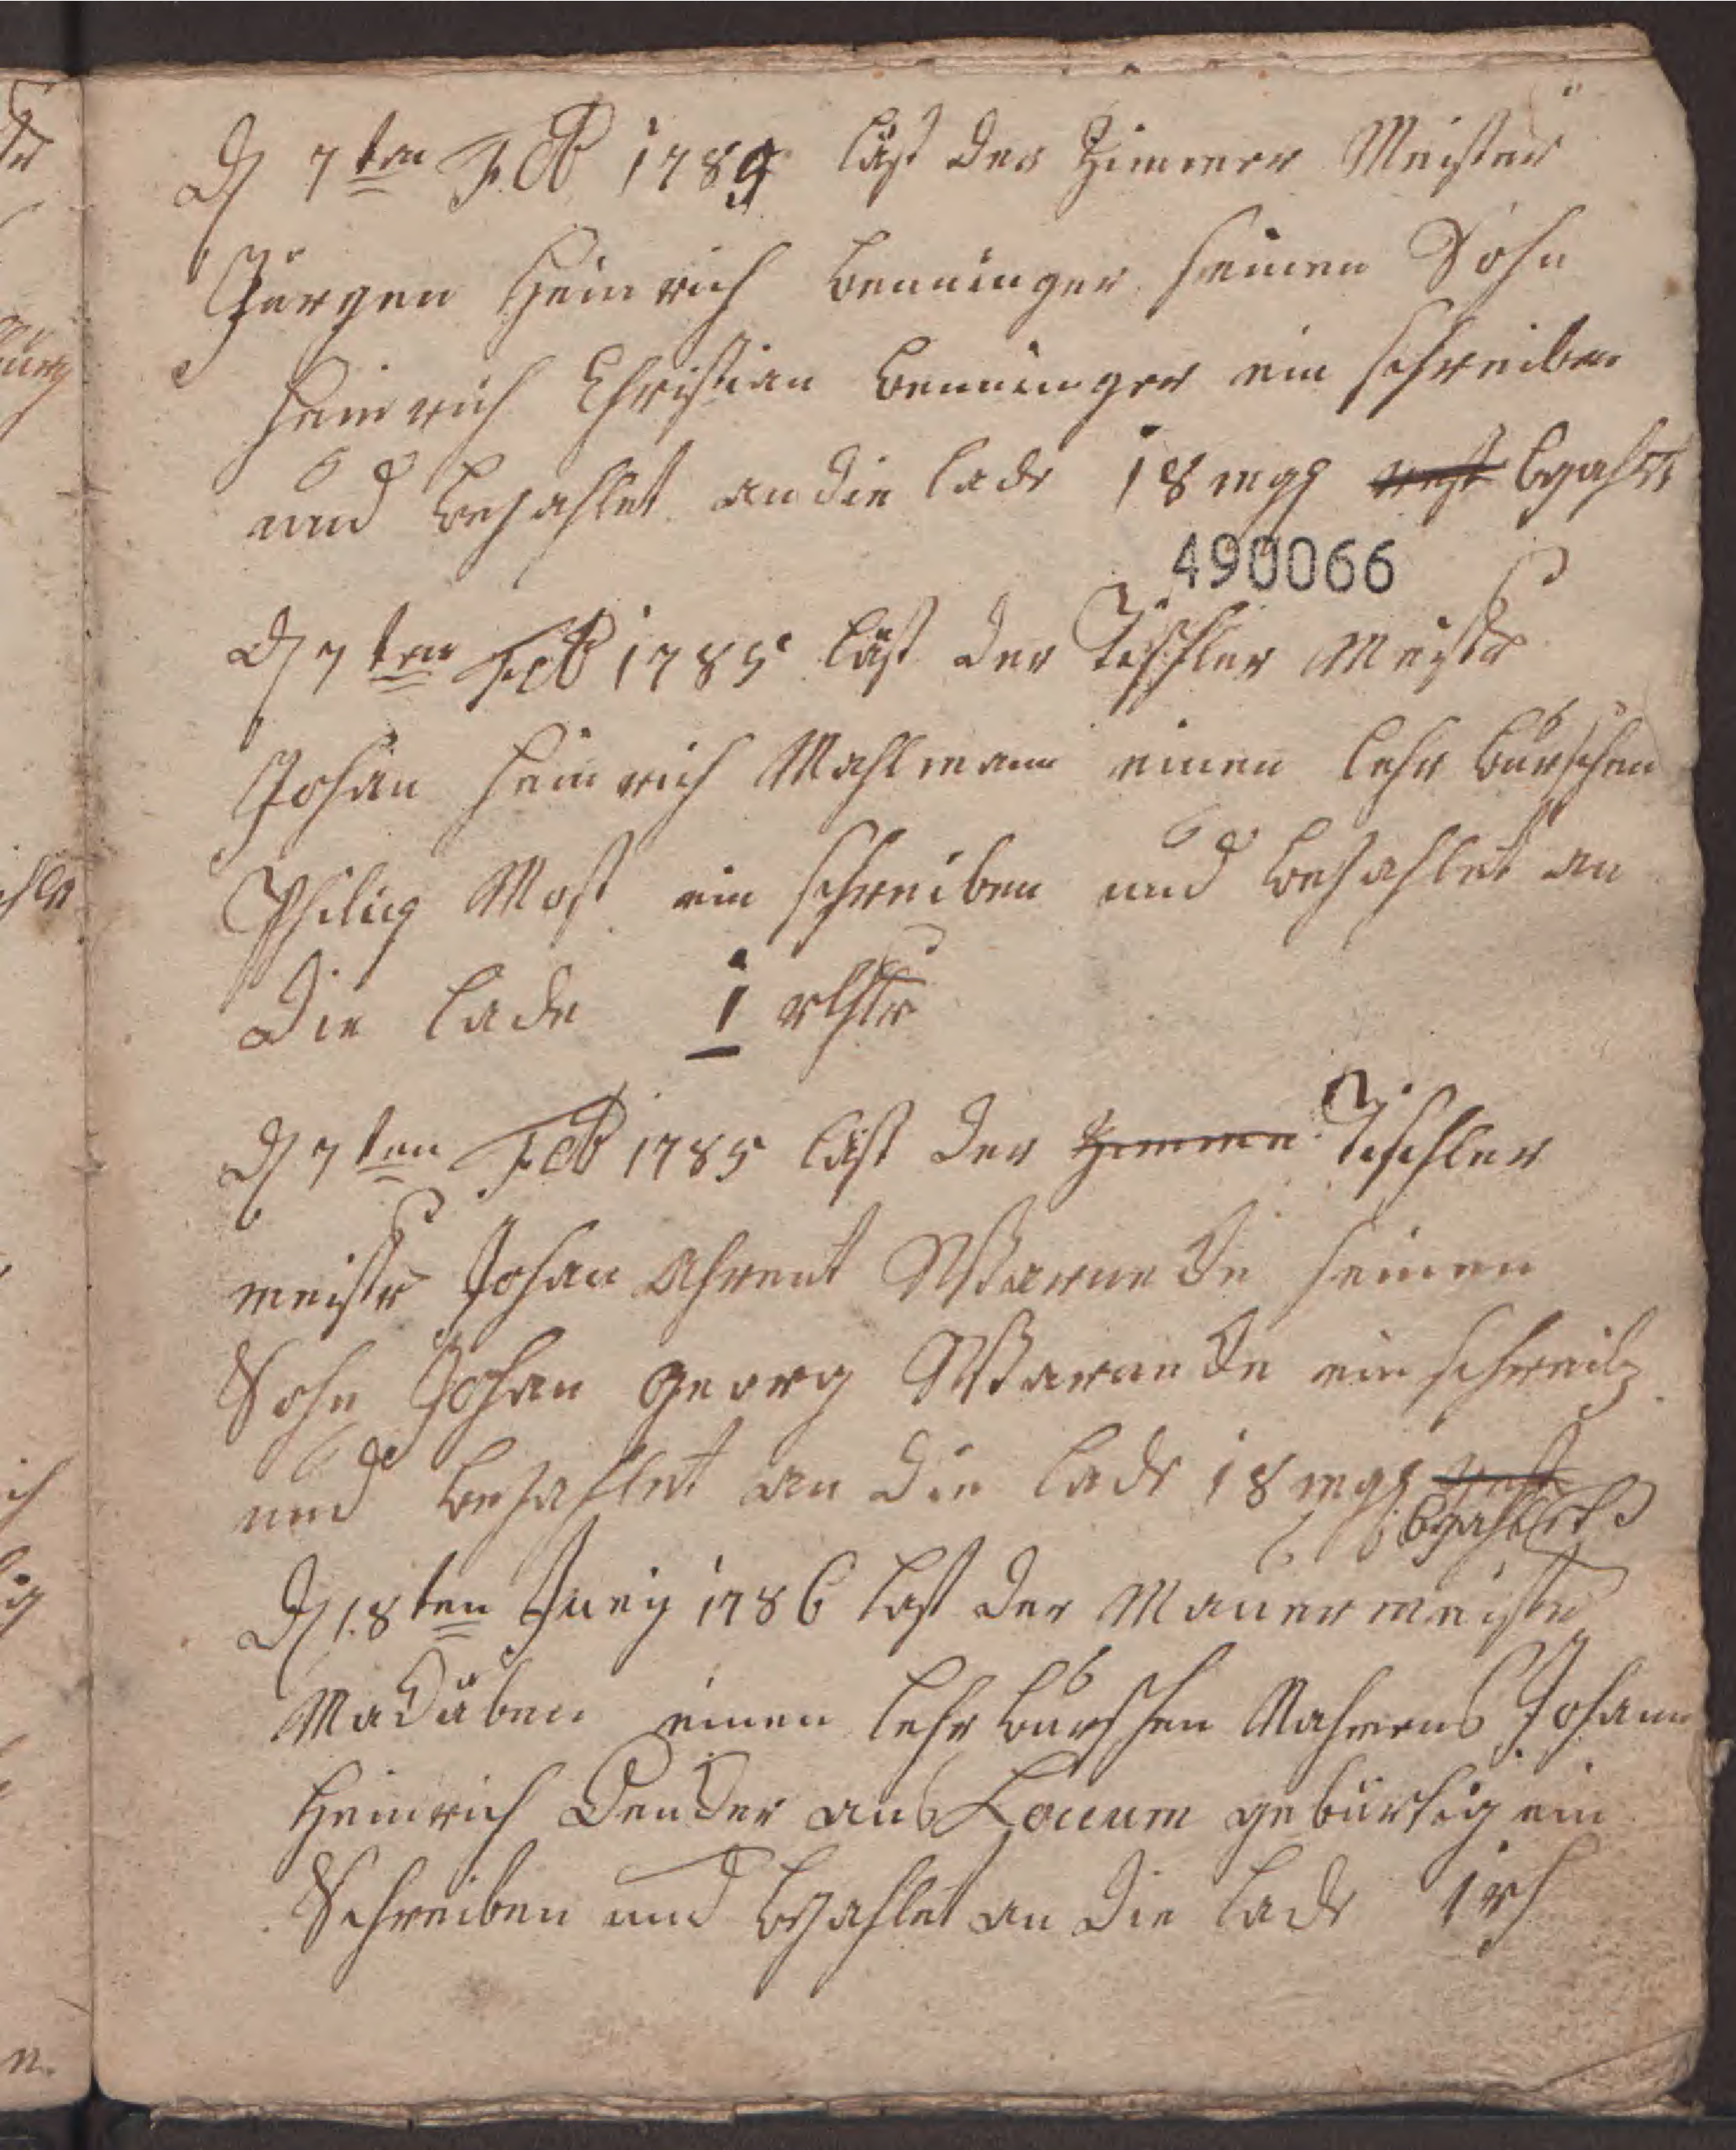 D 7ten Feb 1785 läst der Zimmer Meister
Jürgen Heinrich Benninger seinen Sohn
Heinrich Christian Benninger ein schreiben
und bezahlet an die lade 18 mgg rest bezahlt
490066
D 7ten Feb 1785 läst der Tischler Meister
Johan Heinrich Mahlmann einen lehr burschen
Philip Most ein schreiben und bezahlet an
die lade 1 rthlr
D 7ten Feb 1785 läst der Zimme Tischler
meister Johan Ahrent Warnede seinen
Sohn Johan Georg Warnede ein schreib
und bezahlet an die lade 18 mgg rest
bezahlet
D 18ten Juny 1786 last der Mauer meister
einen lehr burschen Nahmens Johann
Heinrich Dender aus Loccum gebürtig ein
Schreiben und bezahlet an die lade 1 rth